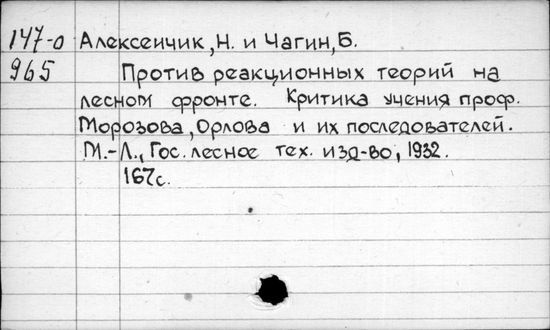 147-о Алексейчик, Н. и Чагин, Б.
965 Против реакционных теорий на
лесном фронте. Критика учения проф.
Морозова, Орлова и их последователей.
М.-Л., Гос. лесное тех. изд-во, 1932.
167с.